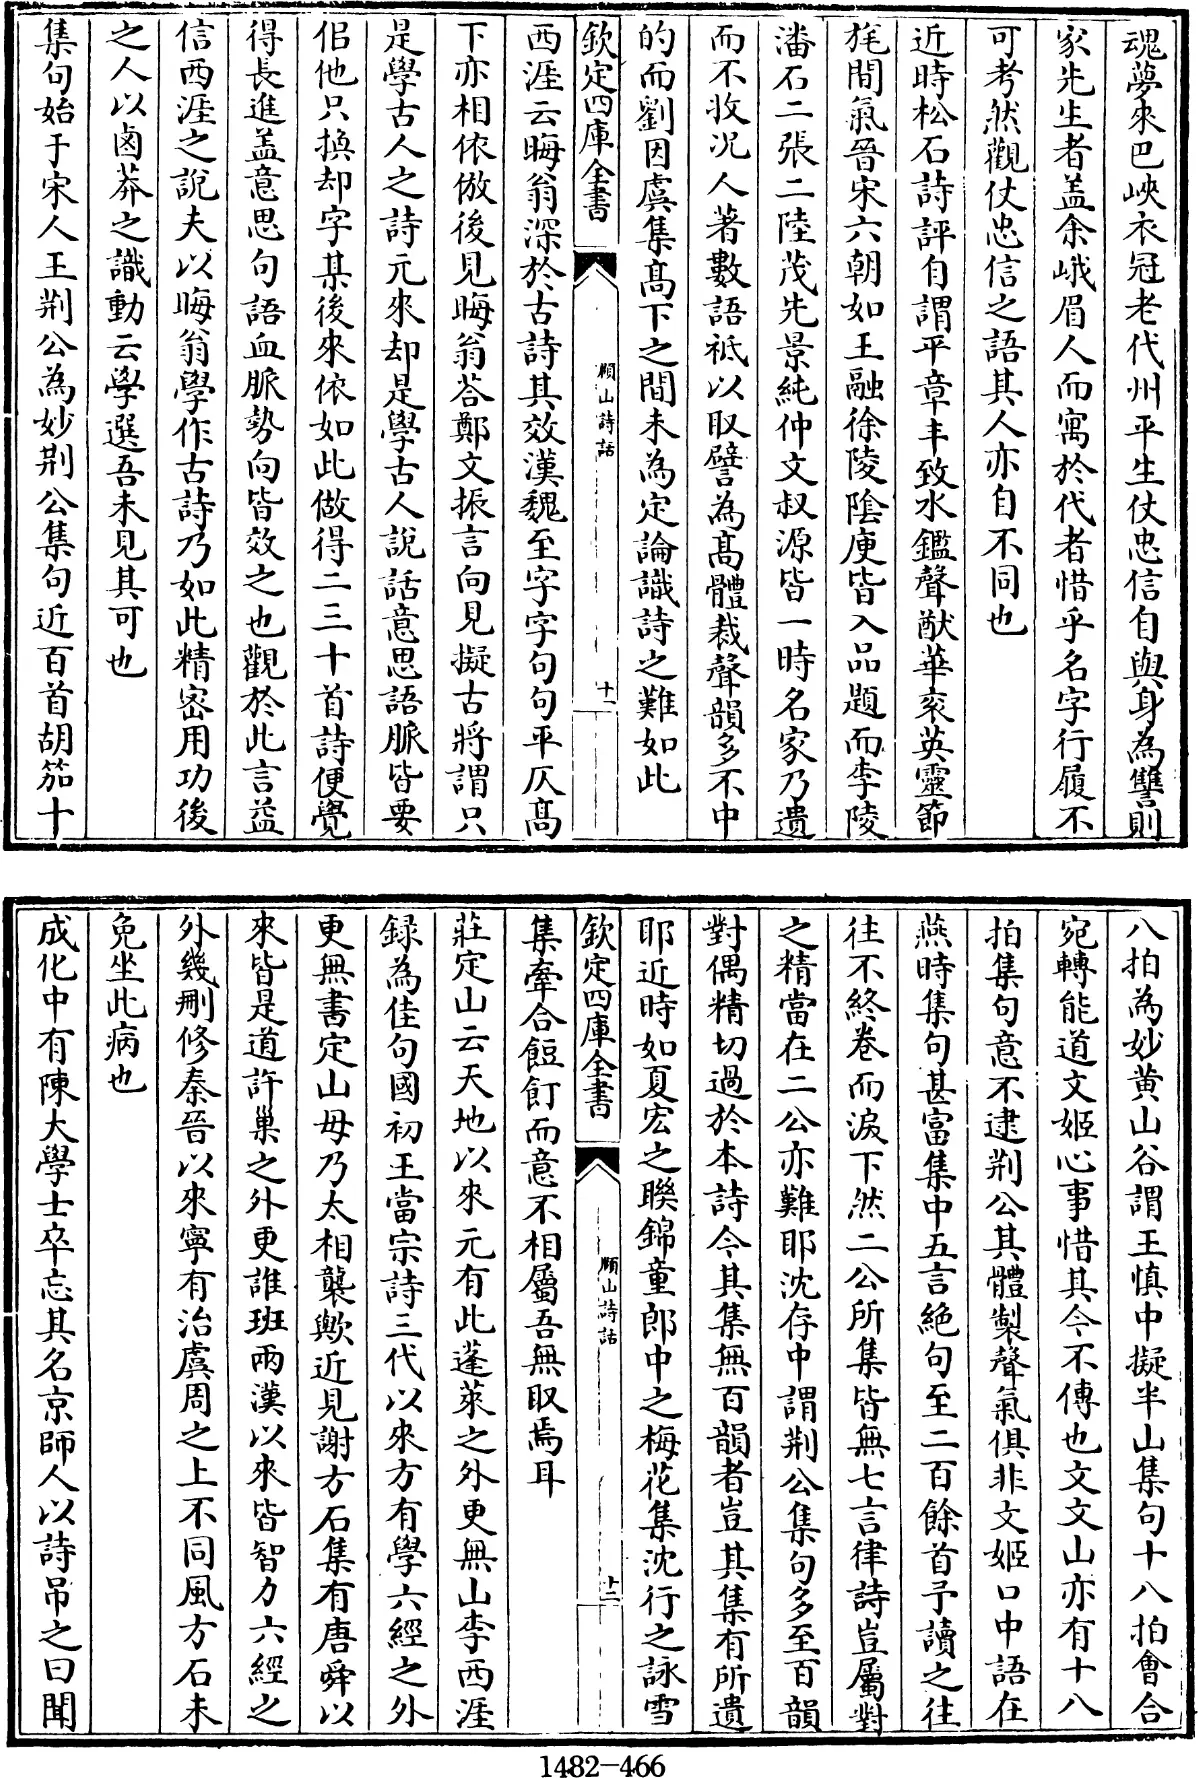 魂夢來巴峽衣冠老代州平生仗忠信自與身為讐則
家先生者盖余峨眉人而寓於代者惜乎名字行履不
可考然觀仗忠信之語其人亦自不同也
近時松石詩評自謂平章丰致水鑑聲猷華衮英靈節
旄間氣晉宋六朝如王融徐陵陰庾皆入品題而李陵
潘石二張二陸茂先景純仲文叔源皆一時名家乃遺
而不收况人著數語祇以取譬為髙體裁聲韻多不中
的而劉因虞集髙下之間未為定論識詩之難如此
欽定四庫全書
頤山詩話
十一
西涯云晦翁深於古詩其效漢魏至字字句句平仄髙
下亦相依倣後見晦翁荅鄭文振言向見擬古將謂只
是學古人之詩元來却是學古人說話意思語脈皆要
佀他只換却字某後來依如此做得二三十首詩便覺
得長進盖意思句語血脈勢向皆效之也觀於此言益
信西涯之說夫以晦翁學作古詩乃如此精密用功後
之人以鹵莽之識動云學選吾未見其可也
集句始于宋人王荆公為妙荆公集句近百首胡笳十
八拍為妙黄山谷謂王慎中擬半山集句十八拍會合
宛轉能道文姬心事惜其今不傳也文文山亦有十八
拍集句意不逮荆公其體製聲氣俱非文姬口中語在
燕時集句甚富集中五言絶句至二百餘首予讀之往
往不終卷而淚下然二公所集皆無七言律詩豈屬對
之精當在二公亦難耶沈存中謂荆公集句多至百韻
對偶精切過於本詩今其集無百韻者豈其集有所遺
耶近時如夏宏之聯錦童郎中之梅花集沈行之詠雪
欽定四庫全書
頤山詩話
十二
集牽合餖飣而意不相屬吾無取焉耳
莊定山云天地以來元有此蓬萊之外更無山李西涯
録為佳句國初王當宗詩三代以來方有學六經之外
更無書定山毋乃太相襲歟近見謝方石集有唐舜以
來皆是道許巢之外更誰班兩漢以來皆智力六經之
外幾刪修秦晉以來寧有治虞周之上不同風方石未
免坐此病也
成化中有陳大學士卒忘其名京師人以詩吊之曰聞
1482-466